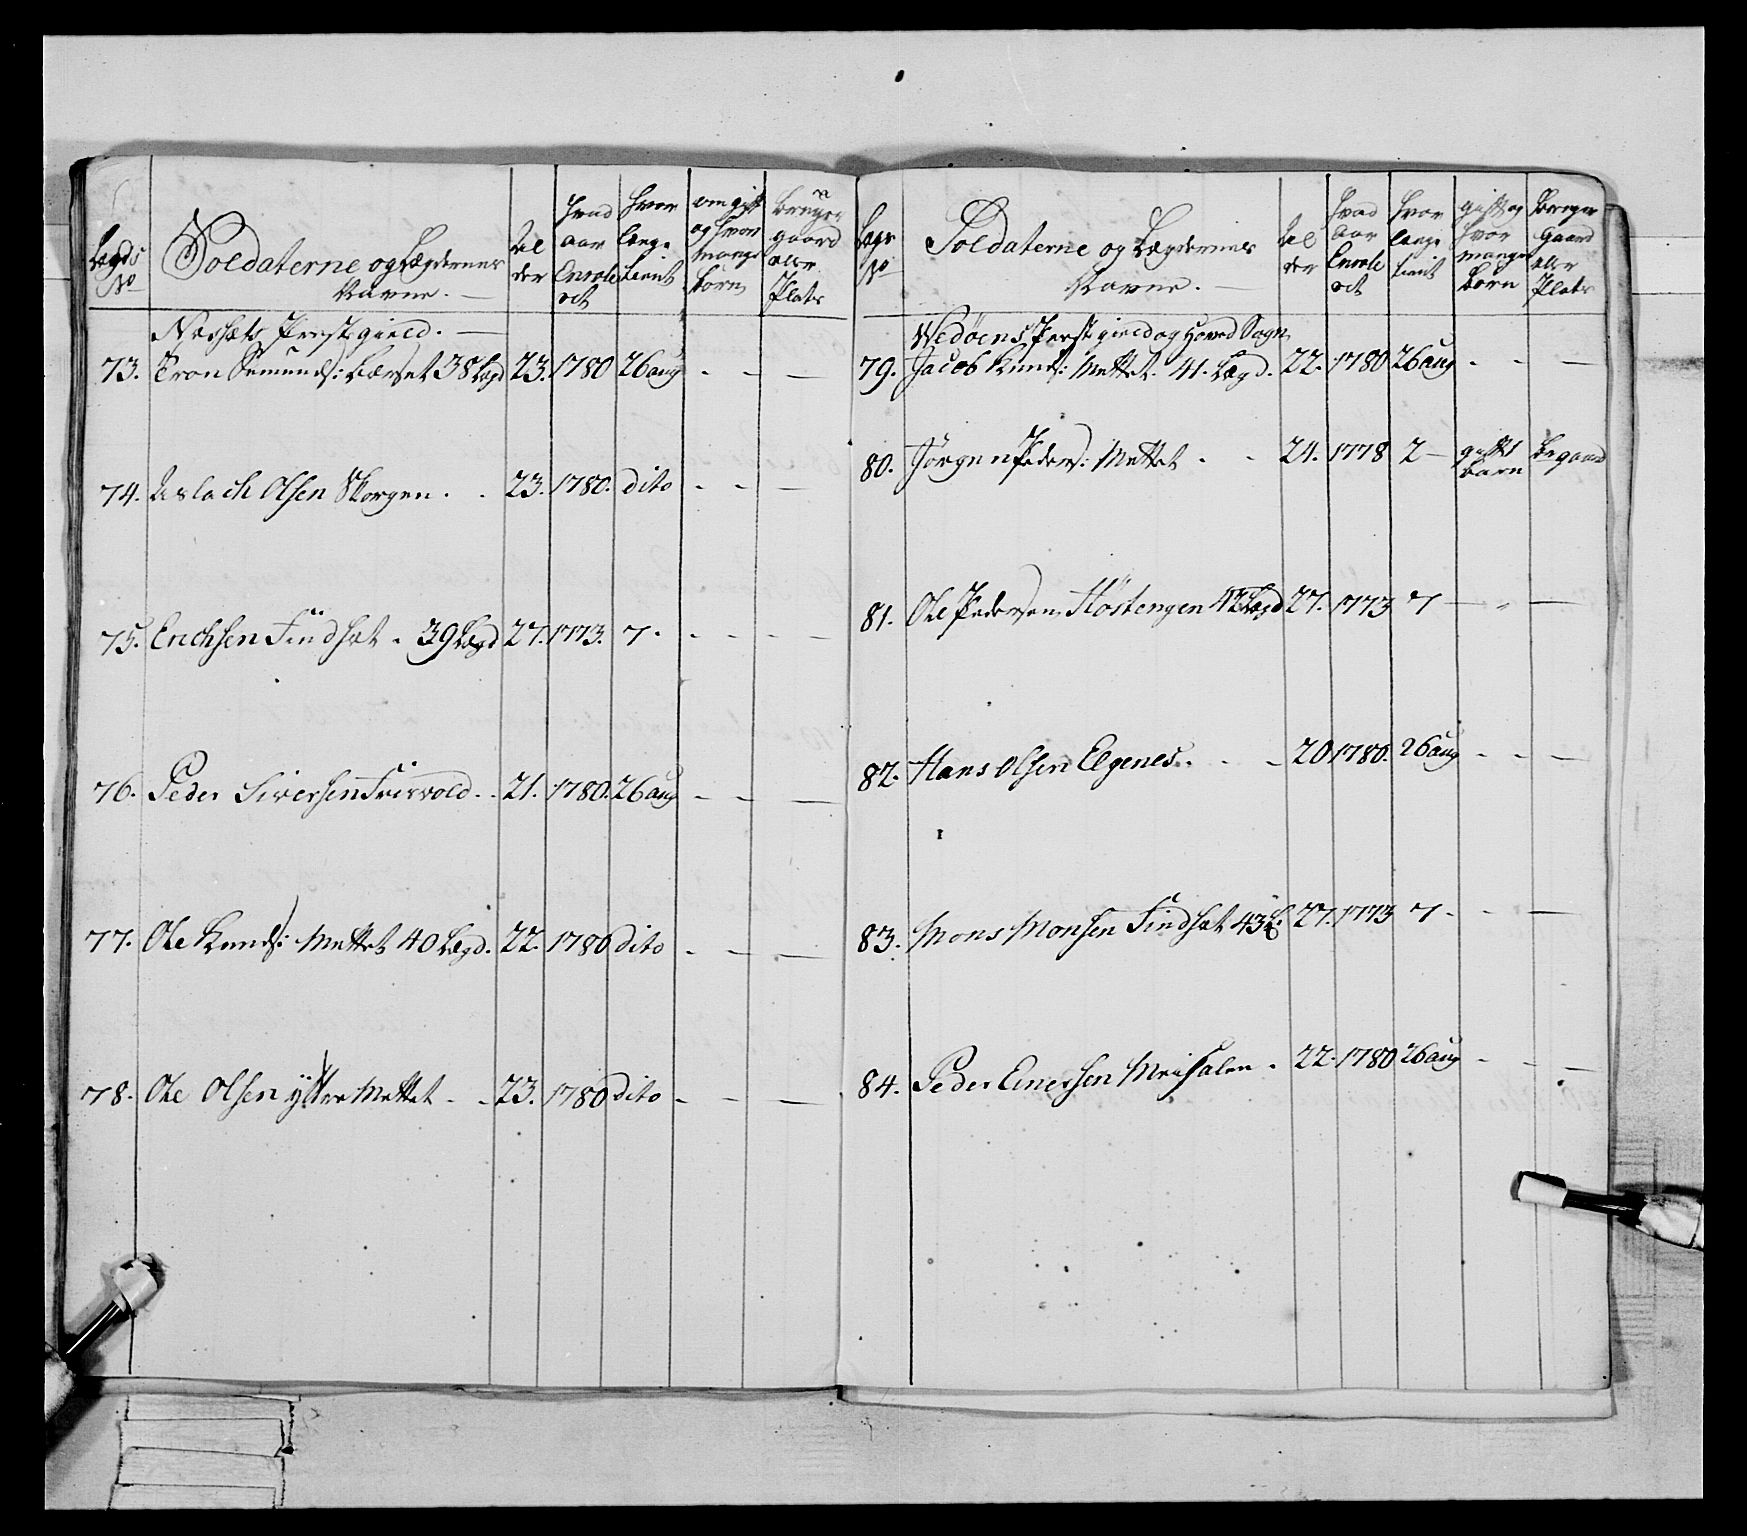 Lægds No
Soldaterne og Lægdernes Navne. —
Al der
hvad aar Enrole ret
hvor længe tient
om gift og hvor mange børn
bruger gaard eller Plads
Nessets Præstegield. —
73. Tron Semunds: Bærset 38 Lægd 23. 1780 26 aug - - —
74. Aslach Olsen Skorgen. . 23. 1780. dito - - —
75. Erichsen Findset . 39 Lægd 27. 1773. 7. - - - —
76. Peder Siversen Frisvold. . 21. 1780. 26 aug - - —
77. Ole Knuds: Mettet 40 Lægd. 22. 1780 dito - - —
78. Ole Olsen ÿttre Mettet . . 23. 1780 dito - - —
Lægs No
Soldaterne og Lægdernes Navne. —
Al der
hvad aar Enrole ret
hvor længe tient
gift og hvor mange børn
bruger Gaard eller Plads
Wedöens Præstegield og Hoved Sogn
79. Jacob Knuds: Mettet. 41. Lægd. 22. 1780 26 aug - - —
80. Jörgen Peders: Mettet . . 24. 1778 2 — gift 1 barn br gaard
81. Ole Pedersen Höstengen 42 Lægd 27. 1773 7 — " —
82. Hans Olsen Elgenes. . . 20 1780. 26 aug - - —
83. Mons Monsen Findset 43 L: 27. 1773 7 - - —
84. Peder Einersen Meisalen . 22. 1780 26 aug - - —